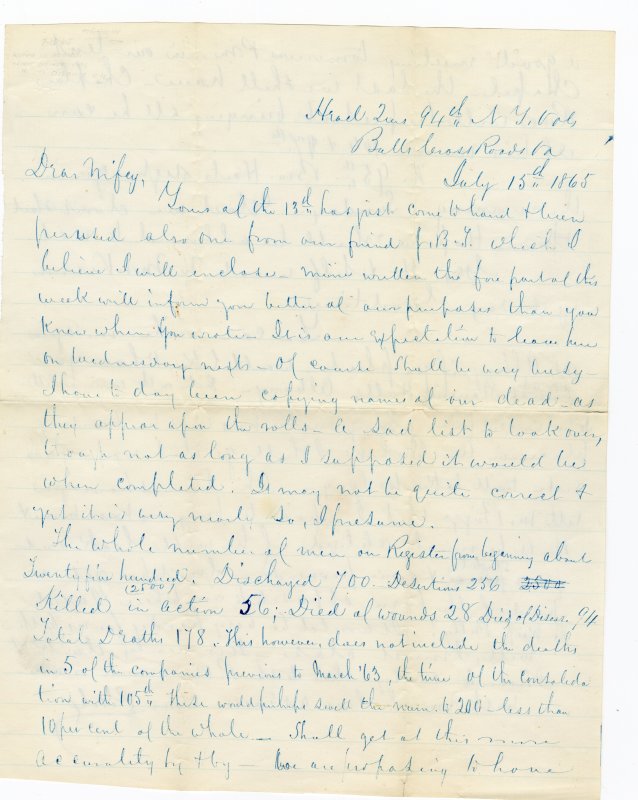 Head Qurs 94th N.Y. Vols
Balls Cross Roads Va
July 15th 1865
Dear Wifey,
Yours of the 13th has just come to hand & been
perused also one from our friend J.B.T. which I
believe I will enclose. mine written the fore part of this
week will inform you better of our purposes than you
knew when you wrote - It is our expectation to leave here
on Wednesday next - Of course shall be very busy -
I have to day been copying names of our dead - as
they appear upon the rolls - A sad list to look over,
though not as long as I supposed it would be
when completed. It may not be quite correct &
yet it is very nearly so, I presume.
The whole number of men on Register from beginning about
Twenty five hundred. Discharged 700 - Desertions 256 2500
(2500)
Killed in action 56; Died of wounds 28 Died of Disease 94
Total Deaths 178. This however, does not include the deaths
in 5 of the companies previous to March '63, the time of the consolida
tion with 105th These would perhaps swell the num. to 200 - less than
10 per cent of the whole - Shall get at this more
accurately by & by - We are proposing to have